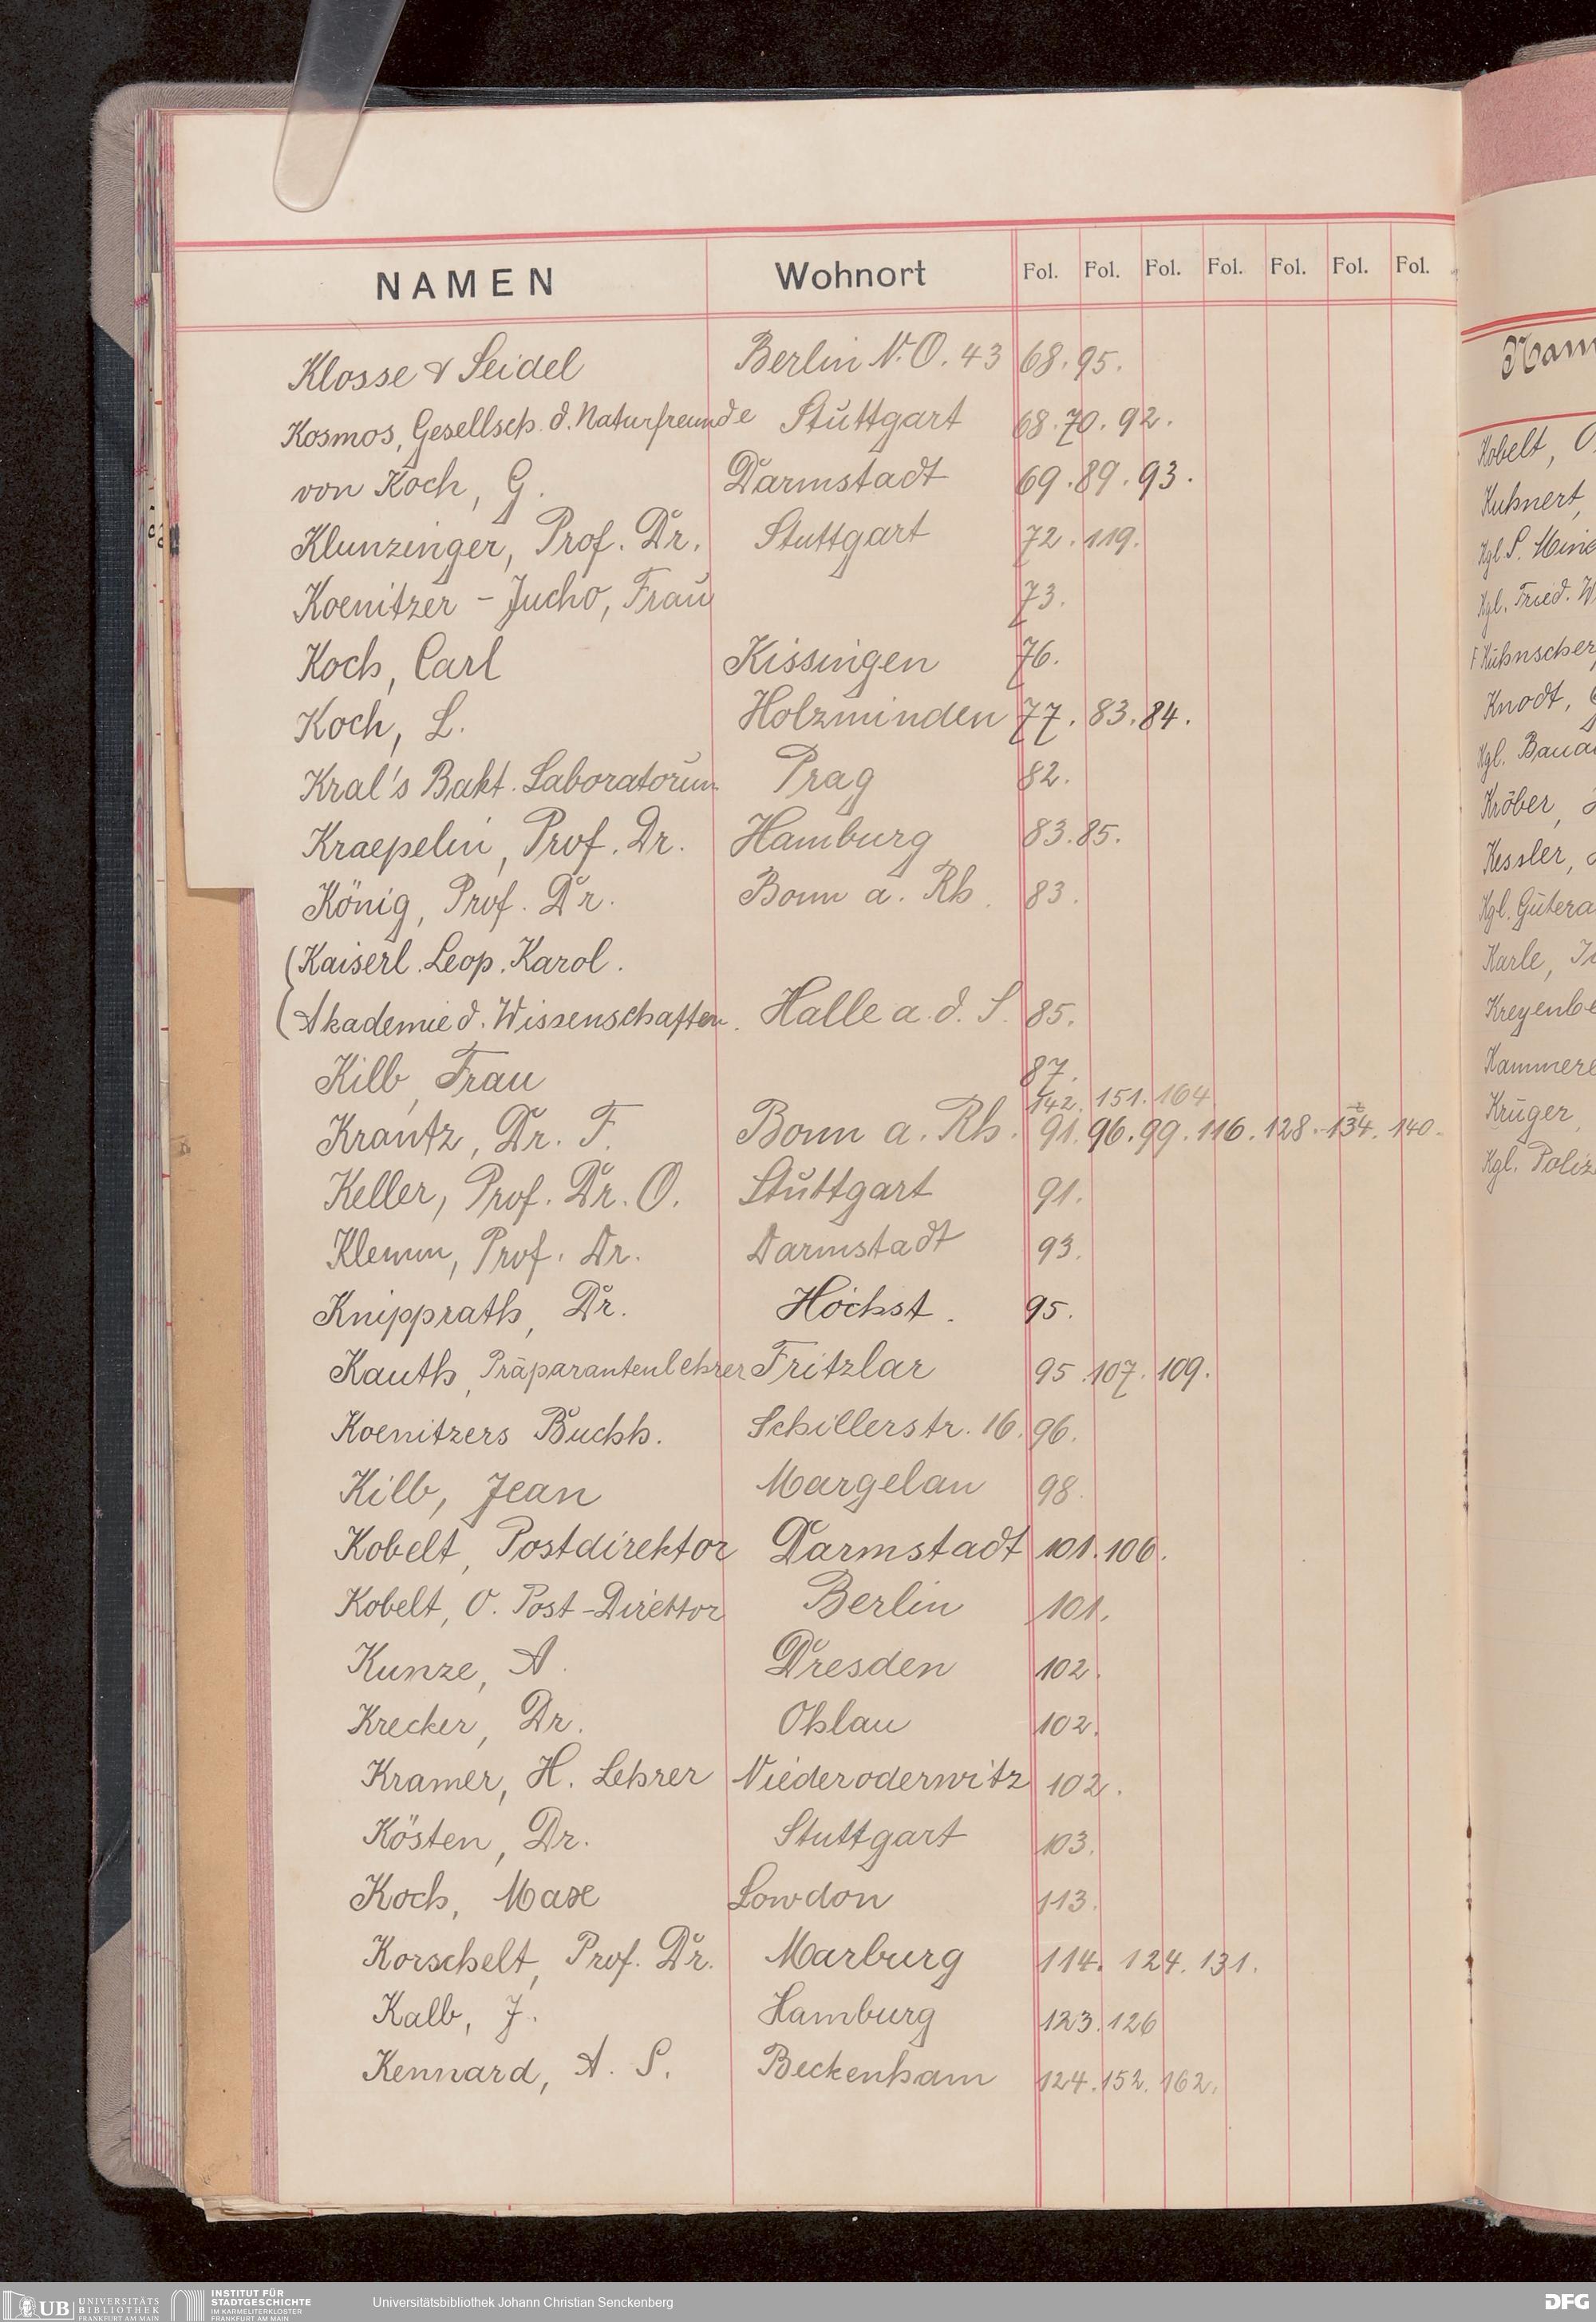 NAMEN Wohnort Fol. Fol. Fol. Fol. Fol. Fol. Fol.
Klosse & Seidel Berlin N.O. 43 68. 95.
Kosmos, Gesellsch. d. Naturfreunde Stuttgart 68. 70. 92.
von Koch, G. Darmstadt 69. 89. 93.
Klunzinger, Prof. Dr. Stuttgart 72. 119.
Koenitzer - Jucho, Frau 73.
Koch, Carl Kissingen 76.
Koch, L. Holzminden 77. 83. 84.
Kral's Bakt. Laboratorium Prag 82.
Kraepelin, Prof. Dr. Hamburg 83. 85.
König, Prof. Dr. Bonn a. Rh. 83.
(Kaiserl. Leop. Karol.
(Akademie d. Wissenschaften. Halle a. d. S. 85.
Kilb, Frau 87.
142. 151. 164
Krantz, Dr. F. Bonn a. Rh. 91. 96. 99. 116. 128. 134. 140.
Keller, Prof. Dr. O. Stuttgart 91.
Klemm, Prof. Dr. Darmstadt 93.
Knipprath, Dr. Höchst. 95.
Kauth, Präparantenlehrer Fritzlar 95. 107. 109.
Koenitzers Buchh. Schillerstr. 16. 96.
Kilb, Jean Margelan 98.
Kobelt, Postdirektor Darmstadt 101. 106.
Kobelt, O. Post-Direktor Berlin 101.
Kunze, A. Dresden 102.
Krecker, Dr. Ohlau 102.
Kramer, H. Lehrer Niederoderwitz 102.
Kösten, Dr. Stuttgart 103.
Koch, Max London 113.
Korschelt, Prof. Dr. Marburg 114. 124. 131.
Kalb, J. Hamburg 123. 126
Kennard, A. S. Beckenham 124. 152. 162.
Kobelt,
Kuhnert,
Kgl. S.
Kgl. Fried. W
Knodt,
Kgl.
Kröber,
Kessler,
Kgl. Gütera
Karle,
Kreyenbe
Kammere
Krüger,
Kgl. Poliz
UB UNIVERSITÄTS BIBLIOTHEK FRANKFURT AM MAIN
INSTITUT FÜR STADTGESCHICHTE IM KARMELITERKLOSTER FRANKFURT AM MAIN
Universitätsbibliothek Johann Christian Senckenberg
DFG